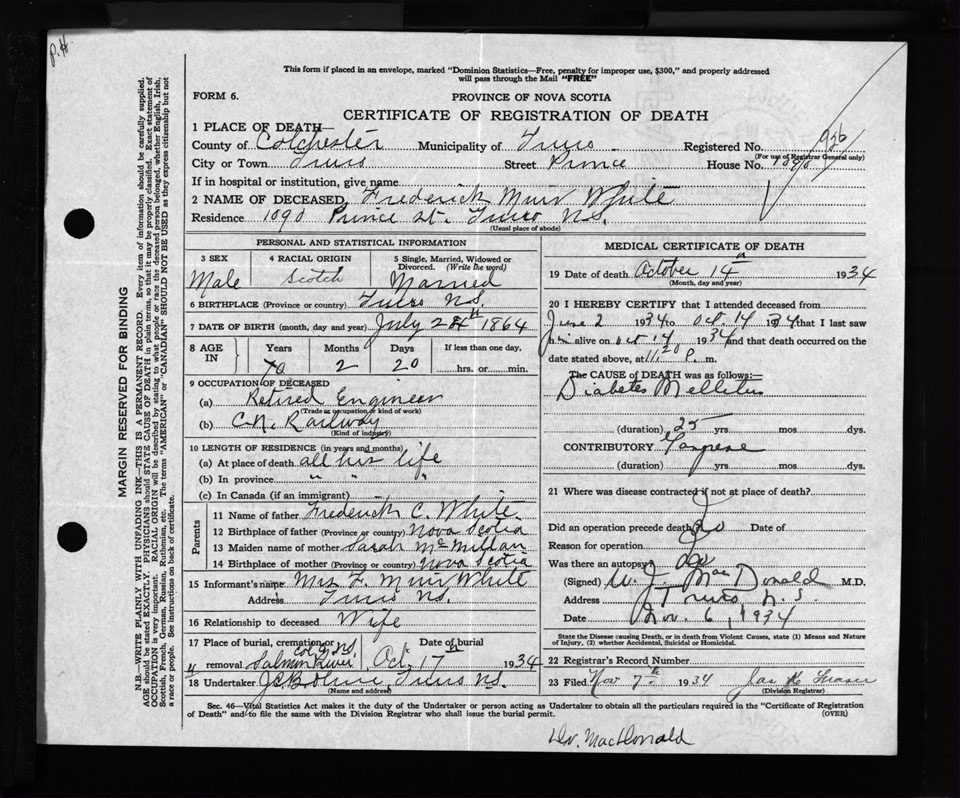 P. H.
This form if placed in an envelope, marked "Dominion Statistics—Free, penalty for improper use, $300," and properly addressed
will pass through the Mail "FREE"
FORM 6.
PROVINCE OF NOVA SCOTIA
CERTIFICATE OF REGISTRATION OF DEATH
1 PLACE OF DEATH—
County of Colchester Municipality of Truro Registered No. 926
(For use of Registrar General only)
City or Town Truro Street Prince House No. 1090
If in hospital or institution, give name
2 NAME OF DECEASED Frederick Muir White
Residence 1090 Prince St. Truro N.S.
(Usual place of abode)
PERSONAL AND STATISTICAL INFORMATION
3 SEX 4 RACIAL ORIGIN 5 Single, Married, Widowed or
Divorced. (Write the word)
Male Scotch Married
6 BIRTHPLACE (Province or country) Truro N.S.
7 DATE OF BIRTH (month, day and year) July 1864
8 AGE IN Years Months Days If less than one day,
70 2 20 hrs. or min.
9 OCCUPATION OF DECEASED
(a) Retired Engineer
(Trade or occupation or kind of work)
(b) C.N. Railway
(Kind of industry)
10 LENGTH OF RESIDENCE (in years and months)
(a) At place of death all his life
(b) In province " " "
(c) In Canada (if an immigrant)
Parents
11 Name of father Frederick C. White
12 Birthplace of father (Province or country) Nova Scotia
13 Maiden name of mother Sarah McMillan
14 Birthplace of mother (Province or country) Nova Scotia
15 Informant's name Mrs F. Muir White
Address Truro N.S.
16 Relationship to deceased Wife
17 Place of burial, cremation or Date of burial
Col. Co. N.S.
removal Salmon River Oct. 17th 1934
18 Undertaker Truro N.S.
(Name and address)
MEDICAL CERTIFICATE OF DEATH
19 Date of death October 14th 1934
(Month, day and year)
20 I HEREBY CERTIFY that I attended deceased from
June 2 1934 to Oct. 14 1934 that I last saw
him alive on Oct 14 1934 and that death occurred on the
date stated above, at 11.20 P. m.
The CAUSE OF DEATH was as follows:—
Diabetes Mellitus
(duration) 25 yrs. mos. dys.
CONTRIBUTORY Gangrene
(duration) yrs. mos. dys.
21 Where was disease contracted if not at place of death?
Did an operation precede death? No Date of
Reason for operation
Was there an autopsy? No
(Signed) W. J. MacDonald M.D.
Address Truro N.S.
Date Nov. 6, 1934
State the Disease causing Death, or in death from Violent Causes, state (1) Means and Nature
of Injury, (2) whether Accidental, Suicidal or Homicidal.
22 Registrar's Record Number
23 Filed Nov 7th 1934 Jas K Fraser
(Division Registrar)
Sec. 46—Vital Statistics Act makes it the duty of the Undertaker or person acting as Undertaker to obtain all the particulars required in the "Certificate of Registration
of Death" and to file the same with the Division Registrar who shall issue the burial permit. (OVER)
Dr. MacDonald
MARGIN RESERVED FOR BINDING
N.B.—WRITE PLAINLY WITH UNFADING INK—THIS IS A PERMANENT RECORD. Every item of information should be carefully supplied.
AGE should be stated EXACTLY. PHYSICIANS should STATE CAUSE OF DEATH in plain terms, so that it may be properly classified. Exact statement of
OCCUPATION is very important. RACIAL ORIGIN will be described by stating to what people or race the deceased person belonged, whether English, Irish,
Scottish, French, German, Russian, Ruthenian, etc. The terms "AMERICAN" or "CANADIAN" SHOULD NOT BE USED as they express citizenship but not
a race or people. See instructions on back of certificate.